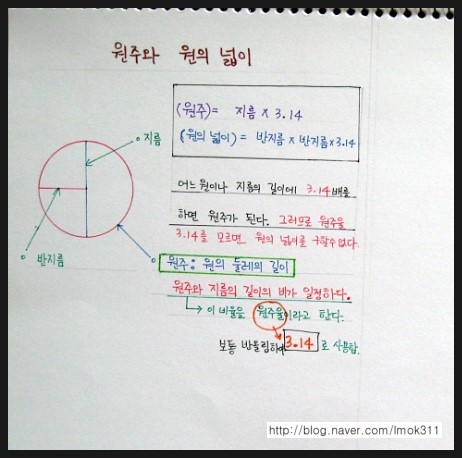 원주와 원의 넓이
(원주)= 지름 × 3.14
(원의 넓이) = 반지름 × 반지름 × 3.14
지름
반지름
어느 원이나 지름의 길이에 3.14배를
하면 원주가 된다. 그러므로 원주율
3.14를 모르면 원의 넓이를 구할수없다.
원주 : 원의 둘레의 길이
원주와 지름의 길이의 비가 일정하다.
이 비율을 원주율이라고 한다.
보통 반올림하여 3.14 로 사용함.
http://blog.naver.com/lmok311